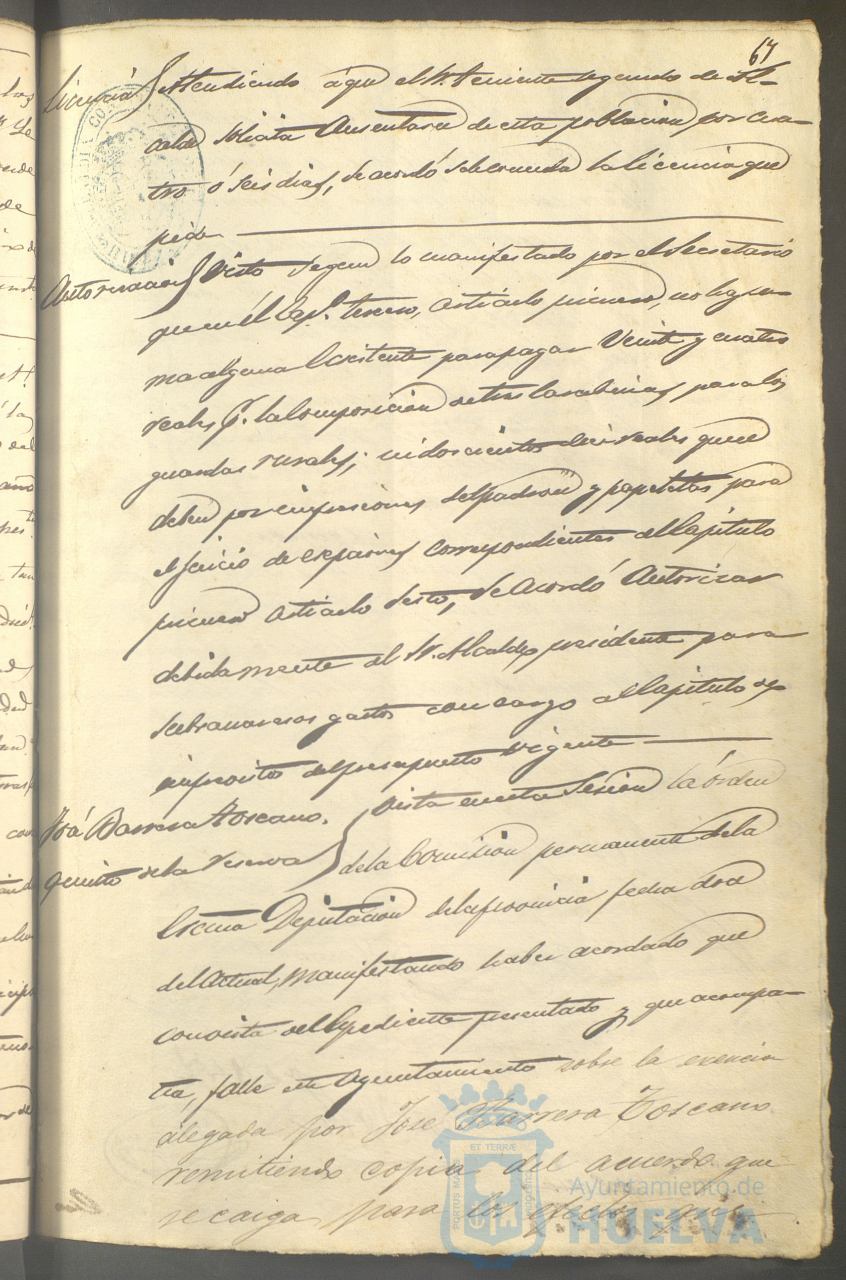 67
Licencia } Atendiendo á que el Sr. Teniente segundo de Al-
calde solicita Ausentarse de esta poblacion por cua-
tro ó seis dias, se acordó se le conceda la licencia que
pide
Autorizacion } Visto segun lo manifestado por el Secretario
que en el Cap.º tercero, artículo primero, no hay su-
ma alguna Ecsistente para pagar Veinte y cuatro
reales p.r la Composicion de tres Carabinas para los
guardas rurales; ni doscientos diez reales que se
deben por impresiones del padron y papeletas para
el juicio de correspondientes al Capitulo
primero Artículo Sesto, se Acordó Autorizar
debidamente al Sr. Alcalde presidente para
satisfacer esos gastos con cargo al Capitulo de
imprevistos del presupuesto vigente
José Barrera Toscano.
quinto de la reserva } Vista en esta Sesion la órden
de la Comision permanente de la
Escma Diputacion de la provincia fecha doce
del Actual, manifestando haber acordado que
con vista del Espediente presentado y que acompa-
ña, falle este Ayuntamiento sobre la exencion
alegada por José Barrera Toscano
remitiendo copia del acuerdo que
recaiga para los efectos
ET TERRÆ
PORTUS MARIS
CUSTODIA
Ayuntamiento de
HUELVA